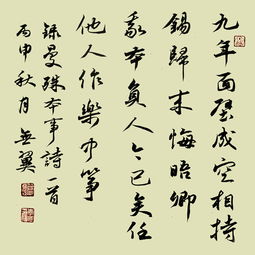 九年面壁成空相持
錫歸来悔晤卿
我本負人今已矣任
他人作樂中箏
錄曼殊本事詩一首
丙申秋月無翼